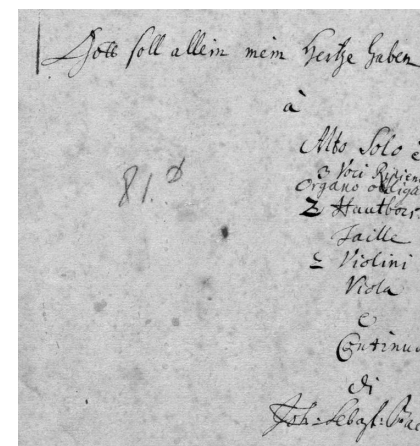 Gott soll allein mein Hertze haben
à
Alto Solo è
3 Voci Ripien
Organo obliga
2 Hautbois
Taille
2 Violini
Viola
e
Continu
di
Joh: Sebast: Ba
81.